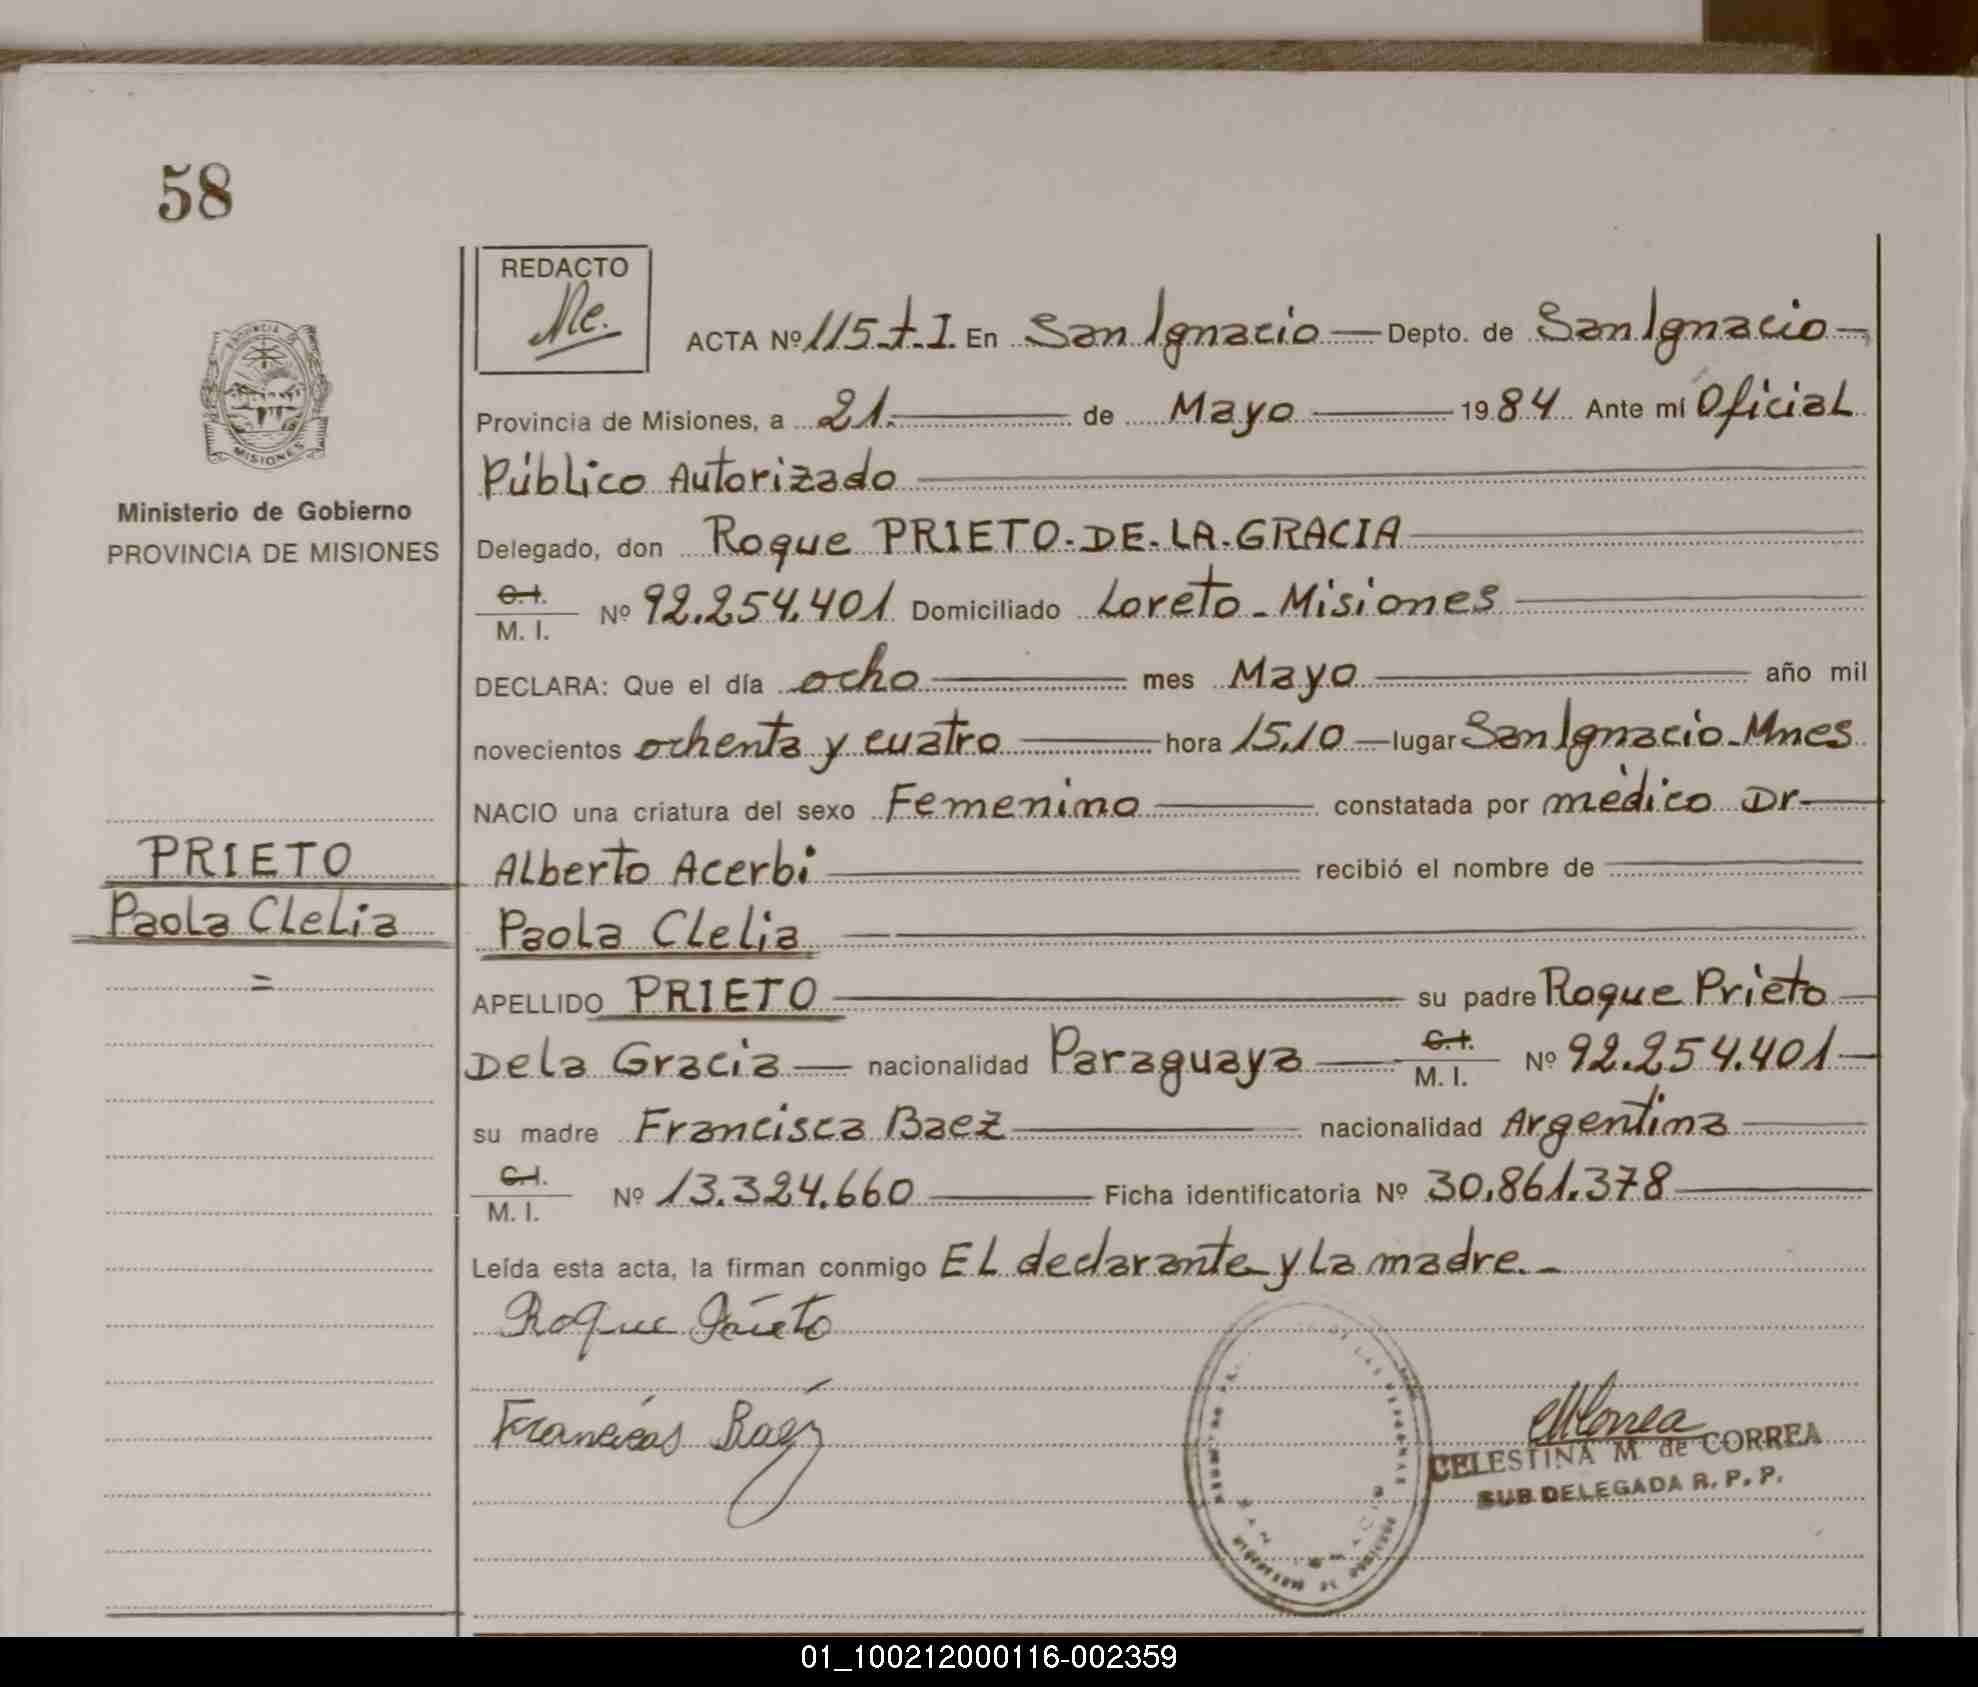 58
REDACTO
ACTA Nº 115-t-I. En San Ignacio Depto. de San Ignacio
Provincia de Misiones, a 21. de Mayo 1984 Ante mí Oficial
Público Autorizado
Delegado, don Roque PRIETO-DE-LA-GRACIA
C.I.
M. I. Nº 92.254.401 Domiciliado Loreto - Misiones
DECLARA: Que el día ocho mes Mayo año mil
novecientos ochenta y cuatro hora 15,10 lugar San Ignacio - Mnes
NACIO una criatura del sexo Femenino constatada por mèdico Dr
Alberto Acerbi recibió el nombre de
Paola Clelia
APELLIDO PRIETO su padre Roque Prieto
De la Gracia nacionalidad Paraguaya C.I. M. I. Nº 92.254.401
su madre Francisca Baez nacionalidad Argentina
C.I.
M. I. Nº 13.324.660 Ficha identificatoria Nº 30.861.378
Leída esta acta, la firman conmigo El declarante y La madre.-
Roque Prieto
Baez
CELESTINA M. de CORREA
SUB DELEGADA R. P. P.
PROVINCIA
MISIONES
Ministerio de Gobierno
PROVINCIA DE MISIONES
PRIETO
Paola Clelia
=
01_100212000116-002359